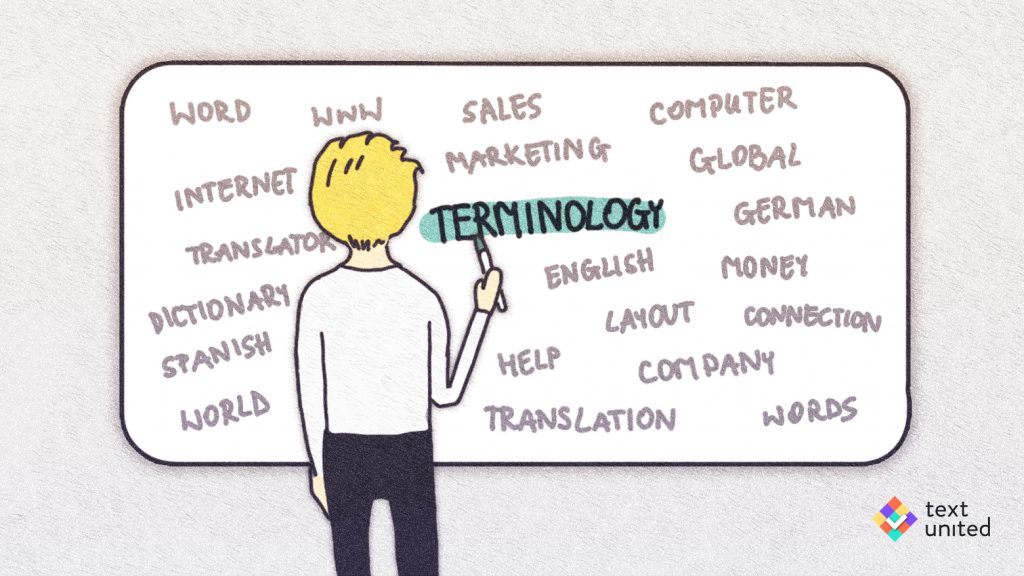 WORD
WWW
SALES
COMPUTER
MARKETING
GLOBAL
INTERNET
TERMINOLOGY
GERMAN
TRANSLATOR
ENGLISH
MONEY
DICTIONARY
LAYOUT
CONNECTION
SPANISH
HELP
COMPANY
WORLD
TRANSLATION
WORDS
text
united